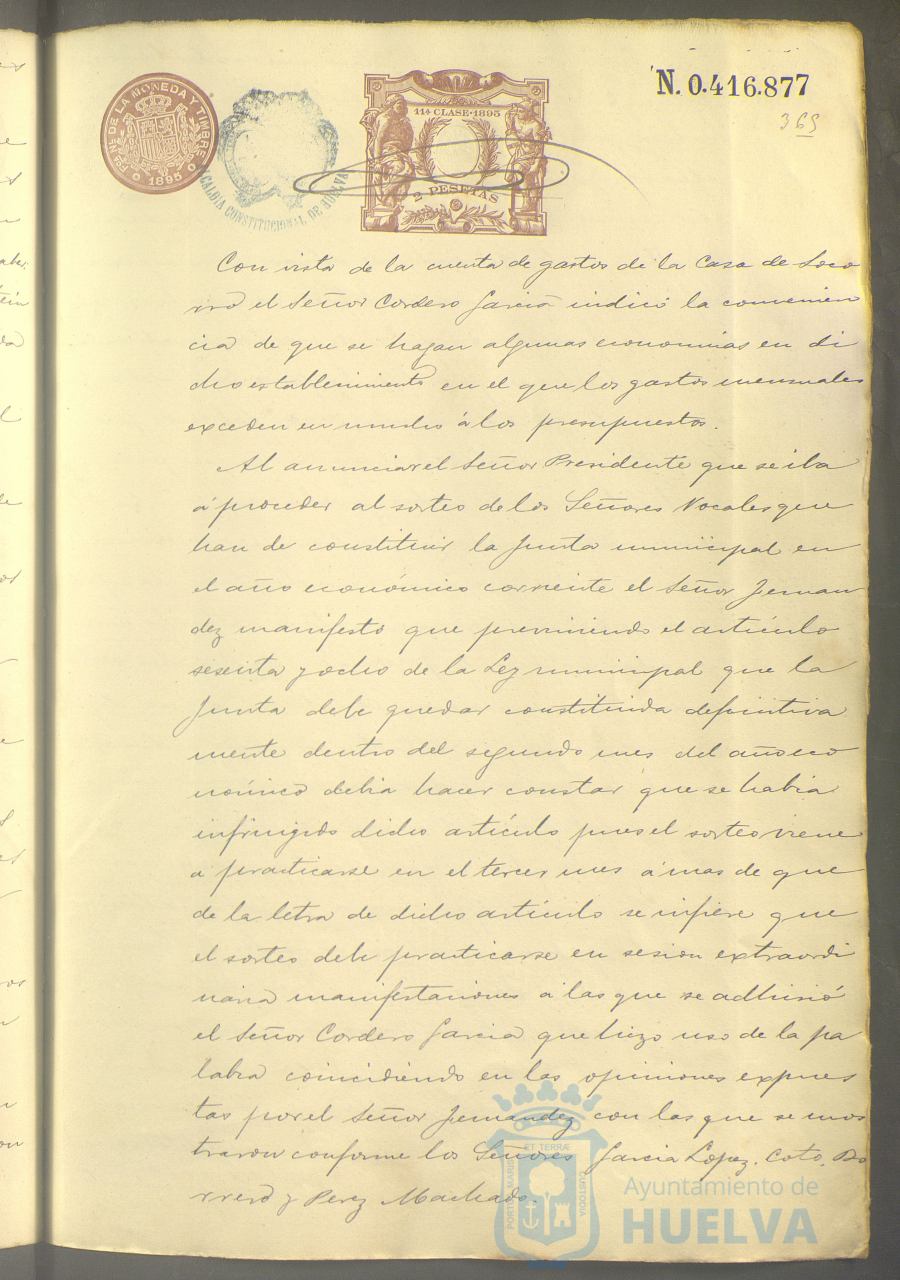 N. 0.416.877
365
FCA. NAL. DE LA MONEDA Y TIMBRE
1895
11ª CLASE·1895
2 PESETAS
ALCALDIA CONSTITUCIONAL DE HUELVA
Con vista de la cuenta de gastos de la Casa de Soco
rro el Señor Cordero Garcia indicó la convenien
cia de que se hagan algunas economias en di
cho establecimiento en el que los gastos mensuales
exceden en mucho á los presupuestos.
Al anunciar el Señor Presidente que se iba
á proceder al sorteo de los Señores Vocales que
han de constituir la Junta municipal en
el año económico corriente el Señor Fernan
dez manifestó que previniendo el artículo
sesenta y ocho de la Ley municipal que la
Junta debe quedar constituida definitiva
mente dentro del segundo mes del año eco
nómico debia hacer constar que se habia
infringido dicho artículo pues el sorteo viene
á practicarse en el tercer mes á mas de que
de la letra de dicho artículo se infiere que
el sorteo debe practicarse en sesion extraordi
naria manifestaciones á las que se adhirió
el Señor Cordero Garcia que hizo uso de la pa
labra coincidiendo en las opiniones expues
tas por el Señor Fernandez con las que se mos
traron conforme los Señores Garcia Lopez, Coto, Bo
rrero y Perez Machado.
PORTUS MARIS ET TERRÆ CUSTODIA
Ayuntamiento de
HUELVA